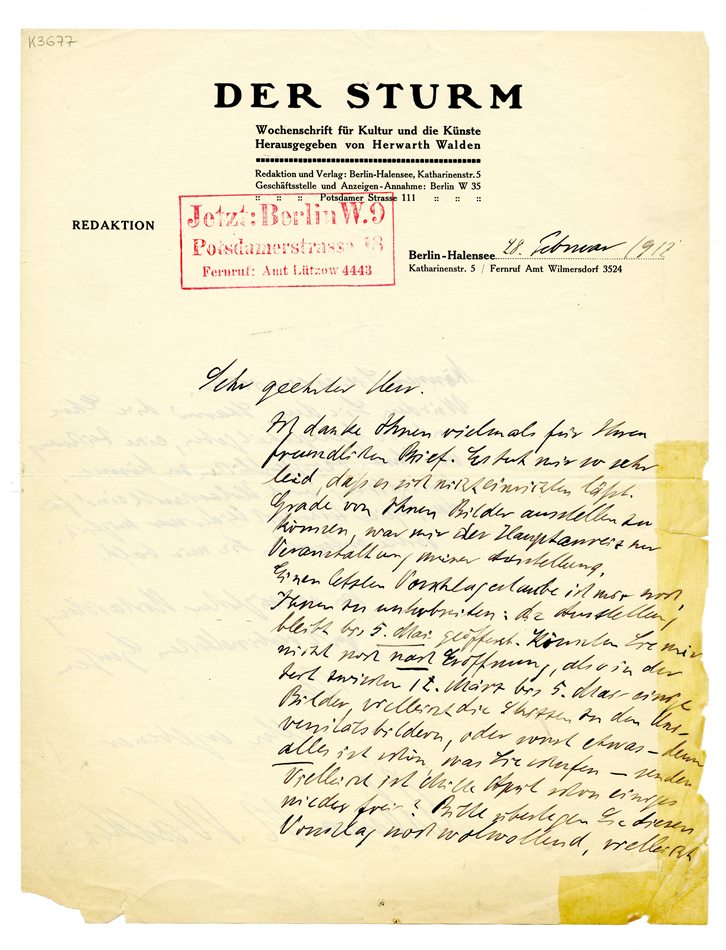 K3677
DER STURM
Wochenschrift für Kultur und die Künste
Herausgegeben von Herwarth Walden
Redaktion und Verlag: Berlin-Halensee, Katharinenstr. 5
Geschäftsstelle und Anzeigen-Annahme: Berlin W 35
:: :: :: Potsdamer Strasse 111 :: :: ::
Jetzt: Berlin W. 9
Potsdamerstrasse 18
Fernruf: Amt Lützow 4443
REDAKTION
Berlin-Halensee 28. Februar 1912
Katharinenstr. 5 / Fernruf Amt Wilmersdorf 3524
Sehr geehrter Herr.
Ich danke Ihnen vielmals für Ihren
freundlichen Brief. Es tut mir so sehr
leid, dass es sich nicht einrichten lässt.
Grade von Ihnen Bilder ausstellen zu
können, war mir der Hauptanreiz zur
Veranstaltung meiner Ausstellung.
Einen letzten Vorschlag erlaube ich mir noch
Ihnen zu unterbreiten: die Ausstellung
bleibt bis 5. Mai geöffnet. Könnten Sie mir
nicht noch nach Eröffnung, also in der
Zeit zwischen 12. März bis 5. Mai einige
Bilder, vielleicht die Skizzen zu den Uni-
versitätsbildern, oder sonst etwas – denn
alles ist schön was Sie schaffen – senden
Vielleicht ist Mitte April schon einiges
wieder frei? Bitte überlegen Sie diesen
Vorschlag noch wohlwollend, vielleicht